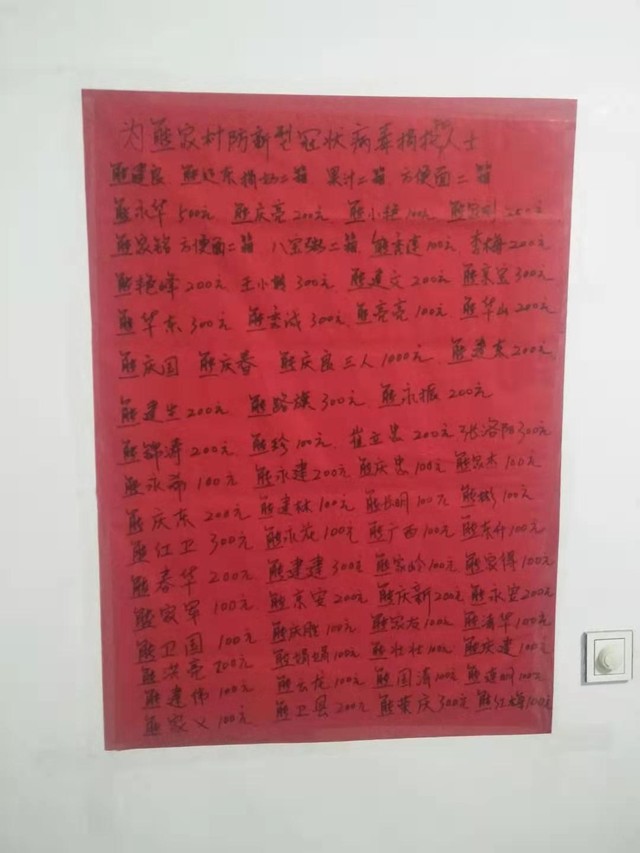 为熊家村防新型冠状病毒捐款人士
熊建良 熊延东 捐奶二箱 果汁二箱 方便面二箱
熊永华 500元 熊庆亮 200元 熊小艳 100元 熊家刚 250元
熊家铭 方便面二箱 八宝粥二箱 熊秀莲 100元 李梅 200元
熊艳峰 200元 王小龄 300元 熊建文 200元 熊京宏 300元
熊华东 300元 熊秀成 300元 熊亮亮 100元 熊华山 200元
熊庆国 熊庆春 熊庆良 三人 1000元 熊建东 200元
熊建生 200元 熊路旗 300元 熊永振 200元
熊锦涛 200元 熊珍 100元 崔立忠 200元 张洛阳 300元
熊永尚 100元 熊永建 200元 熊庆忠 100元 熊家杰 100元
熊庆东 200元 熊建林 100元 熊长明 100元 熊彬 100元
熊红卫 300元 熊永花 100元 熊广西 100元 熊东升 100元
熊春华 200元 熊建建 300元 熊家岭 100元 熊家得 100元
熊家军 100元 熊京安 200元 熊庆新 200元 熊永安 200元
熊卫国 100元 熊庆胜 100元 熊家友 100元 熊清华 100元
熊洪亮 200元 熊娟娟 100元 熊壮壮 100元 熊庆建 100元
熊建伟 100元 熊云龙 100元 熊国涛 100元 熊建明 100元
熊家义 100元 熊卫县 200元 熊荣庆 300元 熊红梅 100元